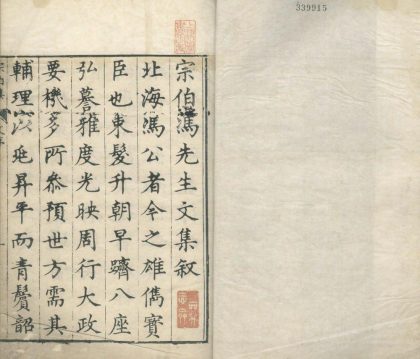 宗伯馮先生文集叙
北海馮公者今之雄儁寶
臣也束髮升朝早躋八座
弘謩雅度光映周行大政
要機多所叅預世方需其
輔理以延昇平而青鬢韶
339915